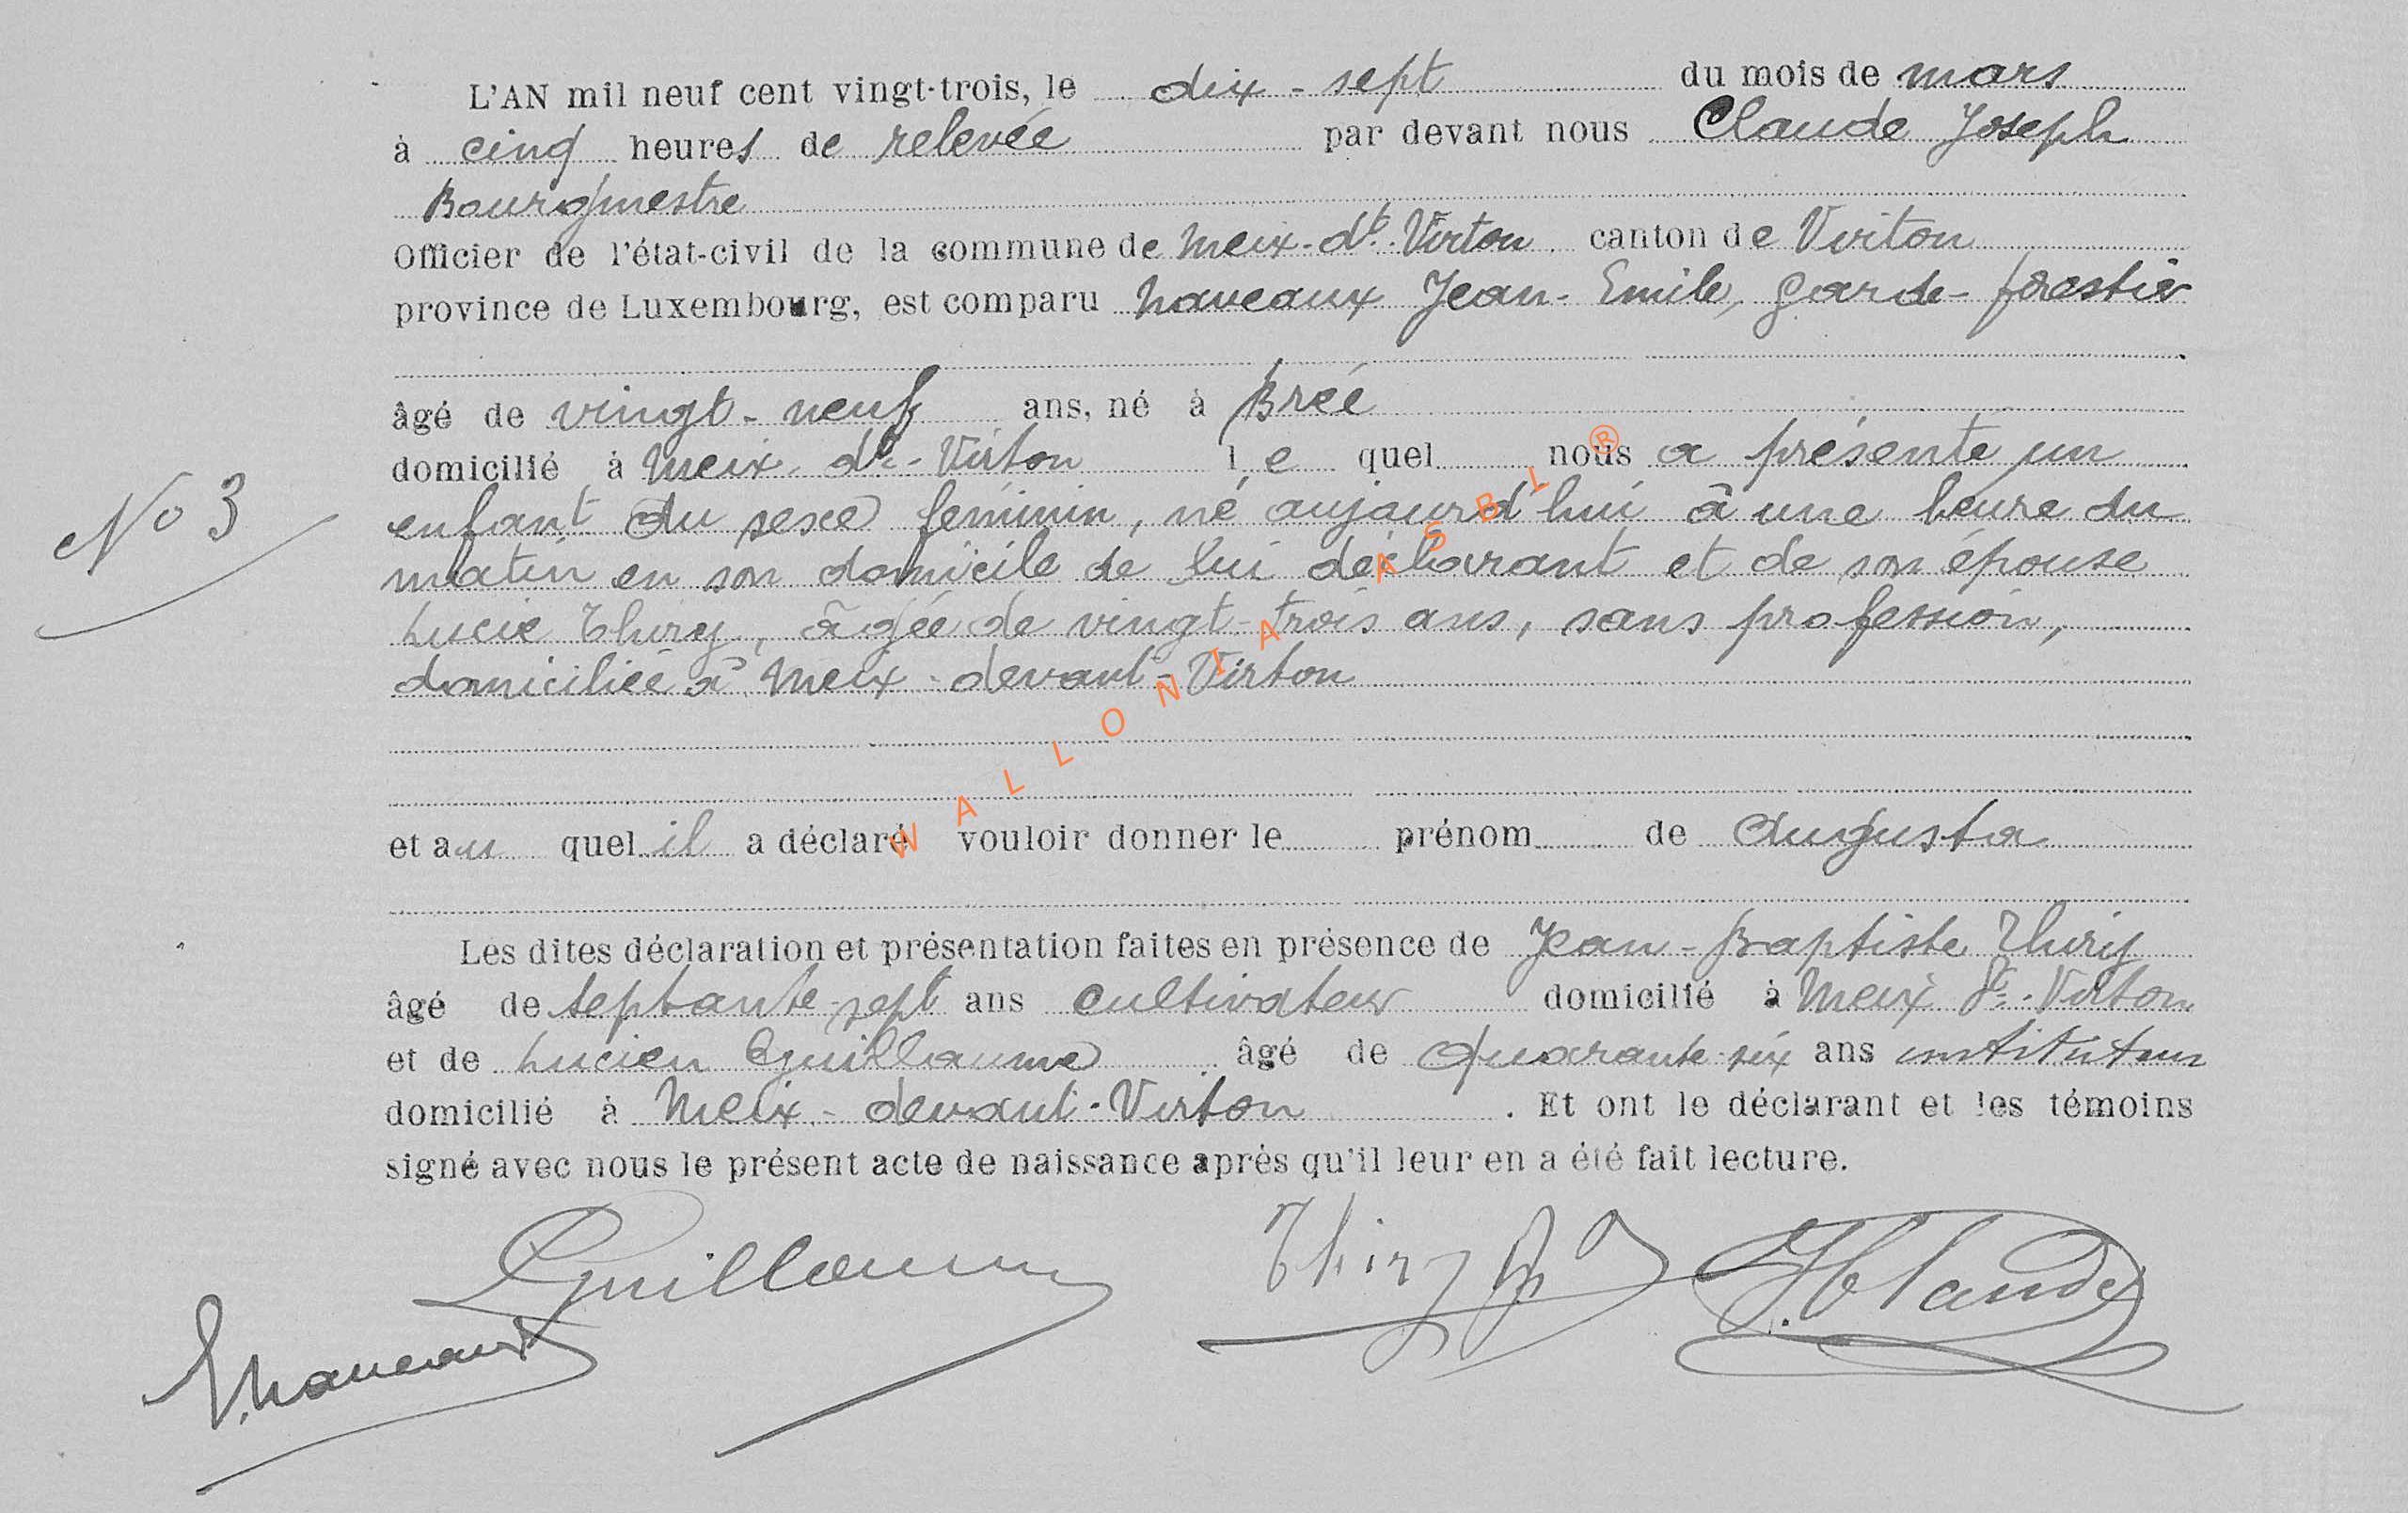 L'AN mil neuf cent vingt-trois, le dix-sept du mois de mars
à cinq heures de relevée par devant nous Claude Joseph
Bourgmestre
Officier de l'état-civil de la commune de Meix-dt-Virton canton de Virton
province de Luxembourg, est comparu Naveaux Jean-Emile, garde-forestier
âgé de vingt-neuf ans, né à Brée
domicilié à Meix-dt-Virton le quel nous a présenté un
No 3
enfant du sexe féminin, né aujourd'hui à une heure du
matin en son domicile de lui déclarant et de son épouse
Lucie Thiry, âgée de vingt-trois ans, sans profession,
domiciliée à Meix-devant-Virton
et au quel il a déclaré vouloir donner le prénom de Augusta
Les dites déclaration et présentation faites en présence de Jean-Baptiste Thiry
âgé de septante-sept ans cultivateur domicilié à Meix dt-Virton
et de Lucien Guillaume âgé de quarante-six ans instituteur
domicilié à Meix-devant-Virton. Et ont le déclarant et les témoins
signé avec nous le présent acte de naissance après qu'il leur en a été fait lecture.
LGuillaume Thiry JB J Claude
E. Naveaux
WALLONIA ASBL ®